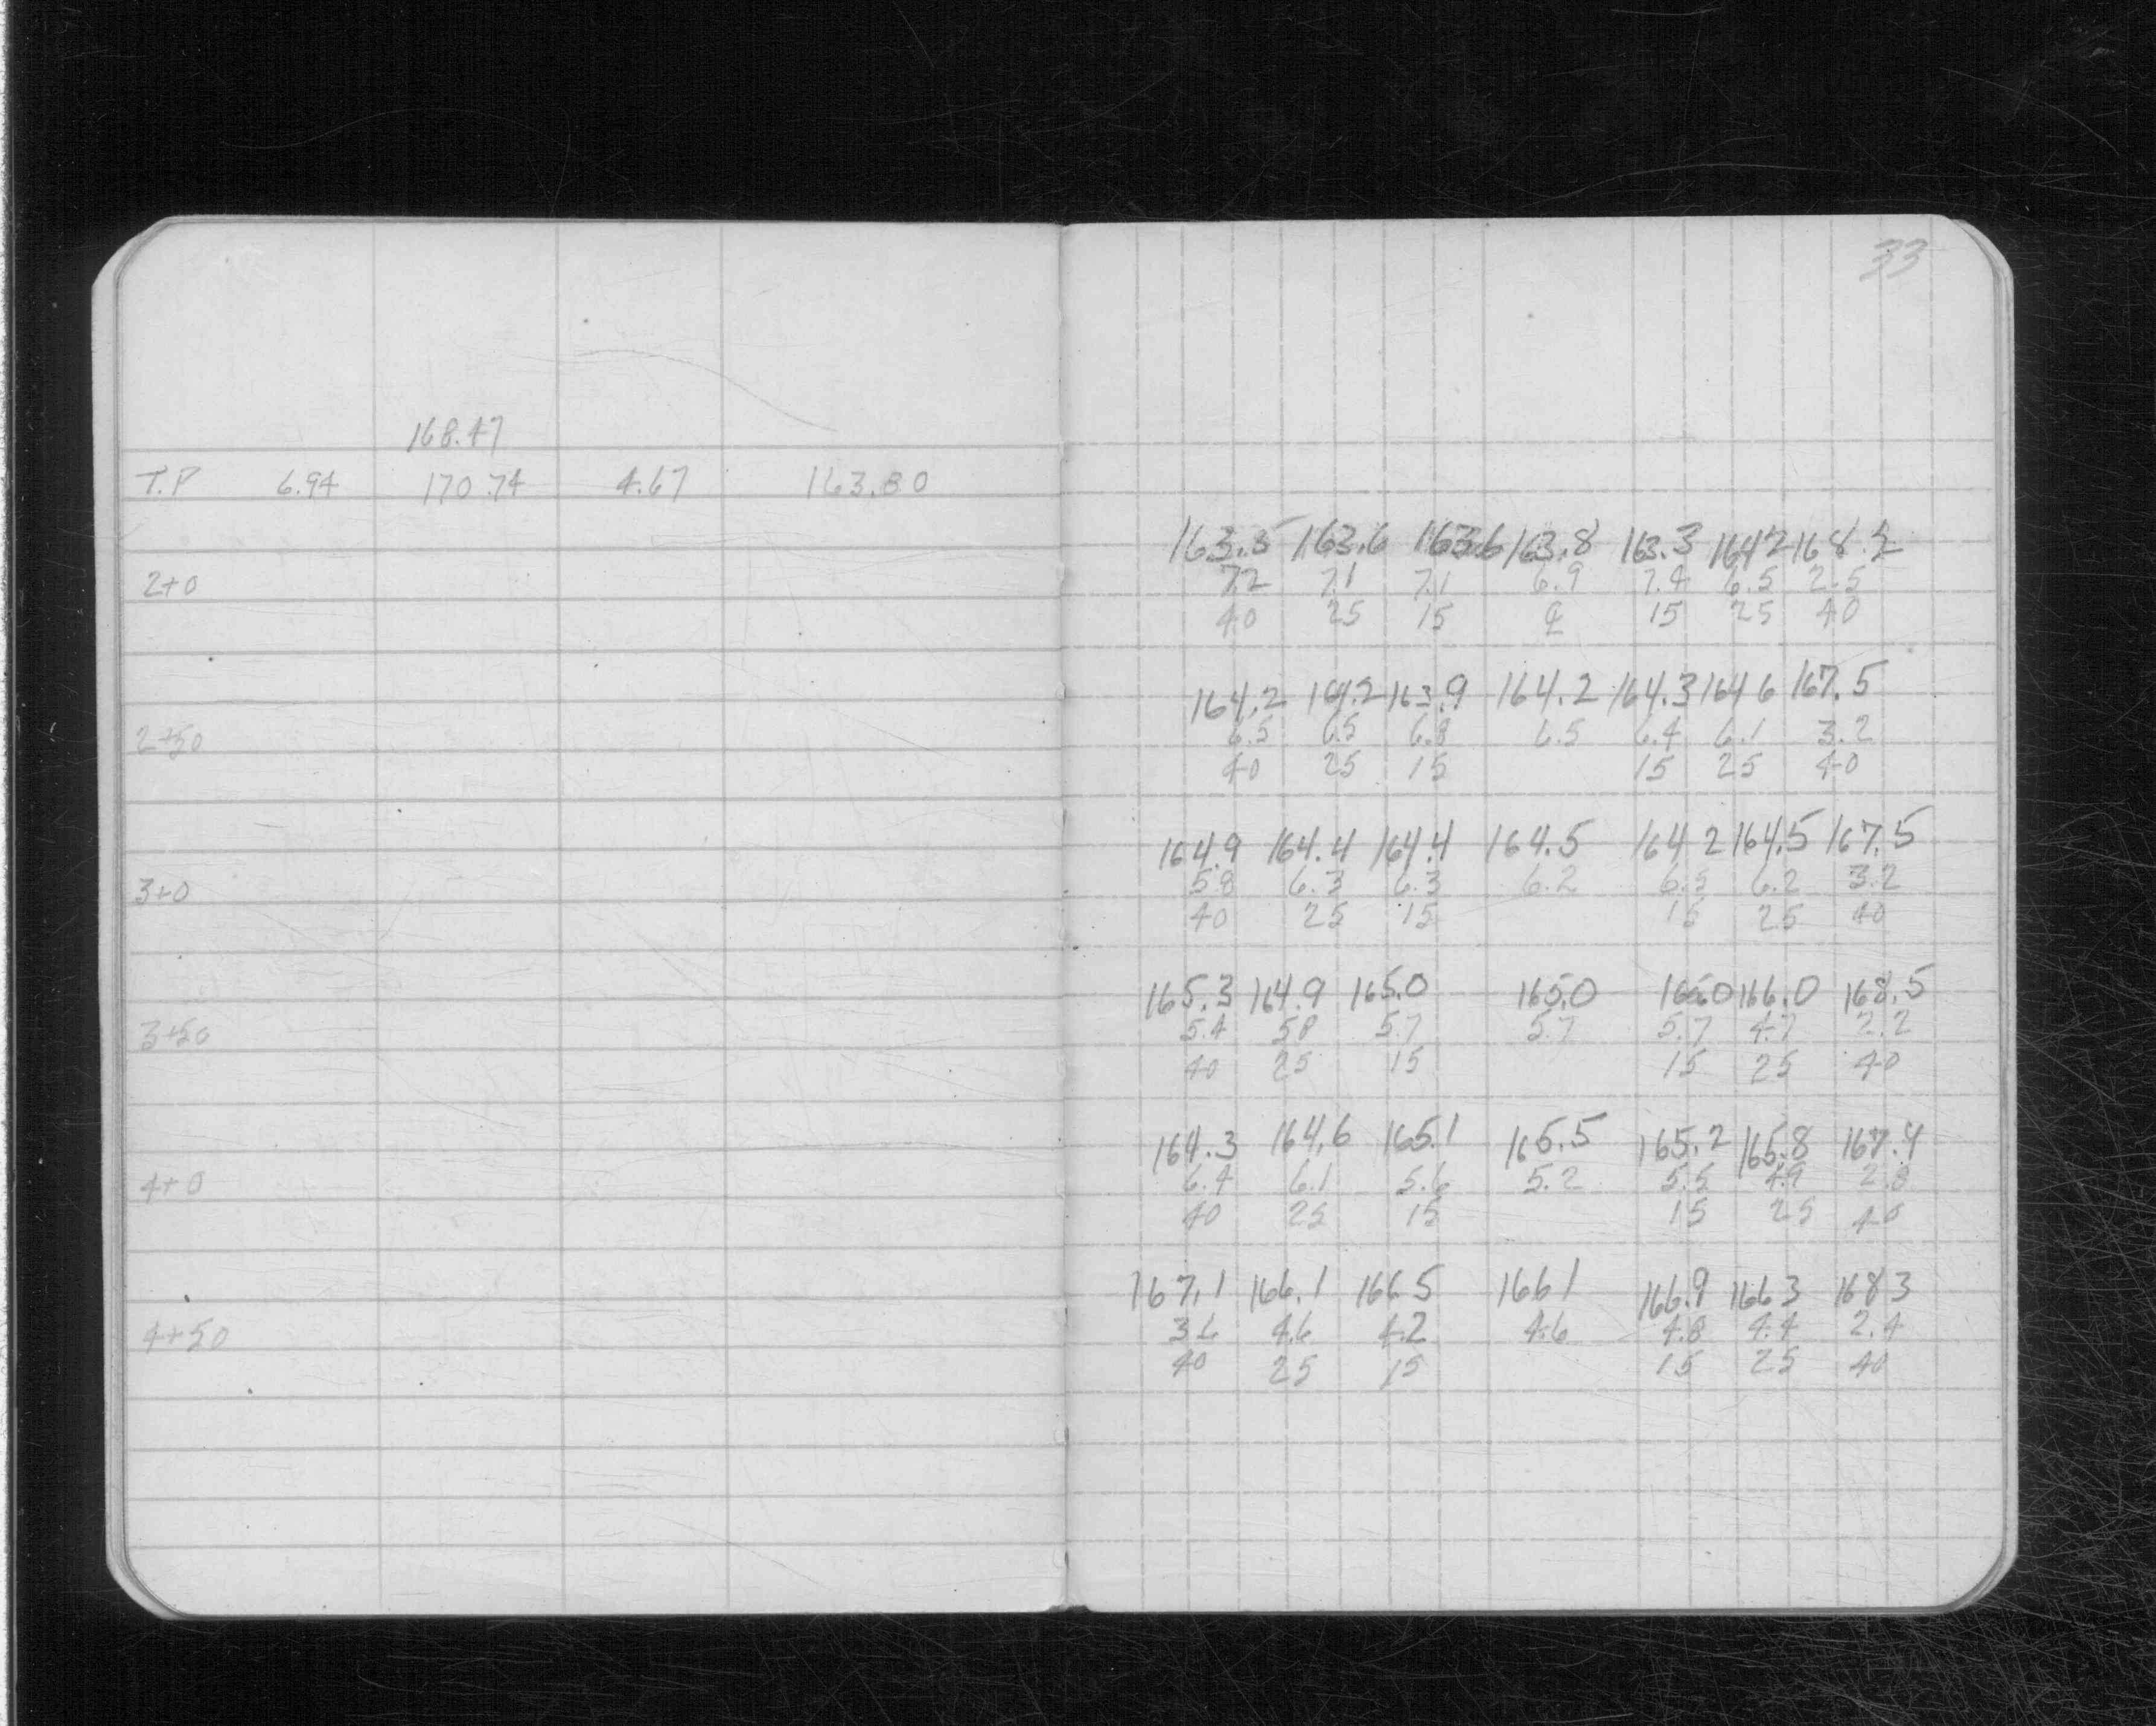 33
168.47
T.P 6.94 170.74 4.67 163.80
163.5 163.6 163.6 163.8 163.3 164 2 168.2
2+0 7.2 7.1 7.1 6.9 7.4 6.5 2.5
40 25 15 ℄ 15 25 40
164.2 164.2 163.9 164.2 164.3 164 6 167.5
2+50 6.5 6.5 6.8 6.5 6.4 6.1 3.2
40 25 15 15 25 40
164.9 164.4 164.4 164.5 164 2 164.5 167.5
3+0 5.8 6.3 6.3 6.2 6.5 6.2 3.2
40 25 15 15 25 40
165.3 164.9 165.0 165.0 165.0 166.0 168.5
3+50 5.4 5.8 5.7 5.7 5.7 4.7 2.2
40 25 15 15 25 40
164.3 164.6 165.1 165.5 165.2 165.8 167.9
4+0 6.4 6.1 5.6 5.2 5.5 4.9 2.8
40 25 15 15 25 40
167.1 166.1 166 5 166 1 166.9 166 3 168 3
4+50 3.6 4.6 4.2 4.6 4.8 4.4 2.4
40 25 15 15 25 40